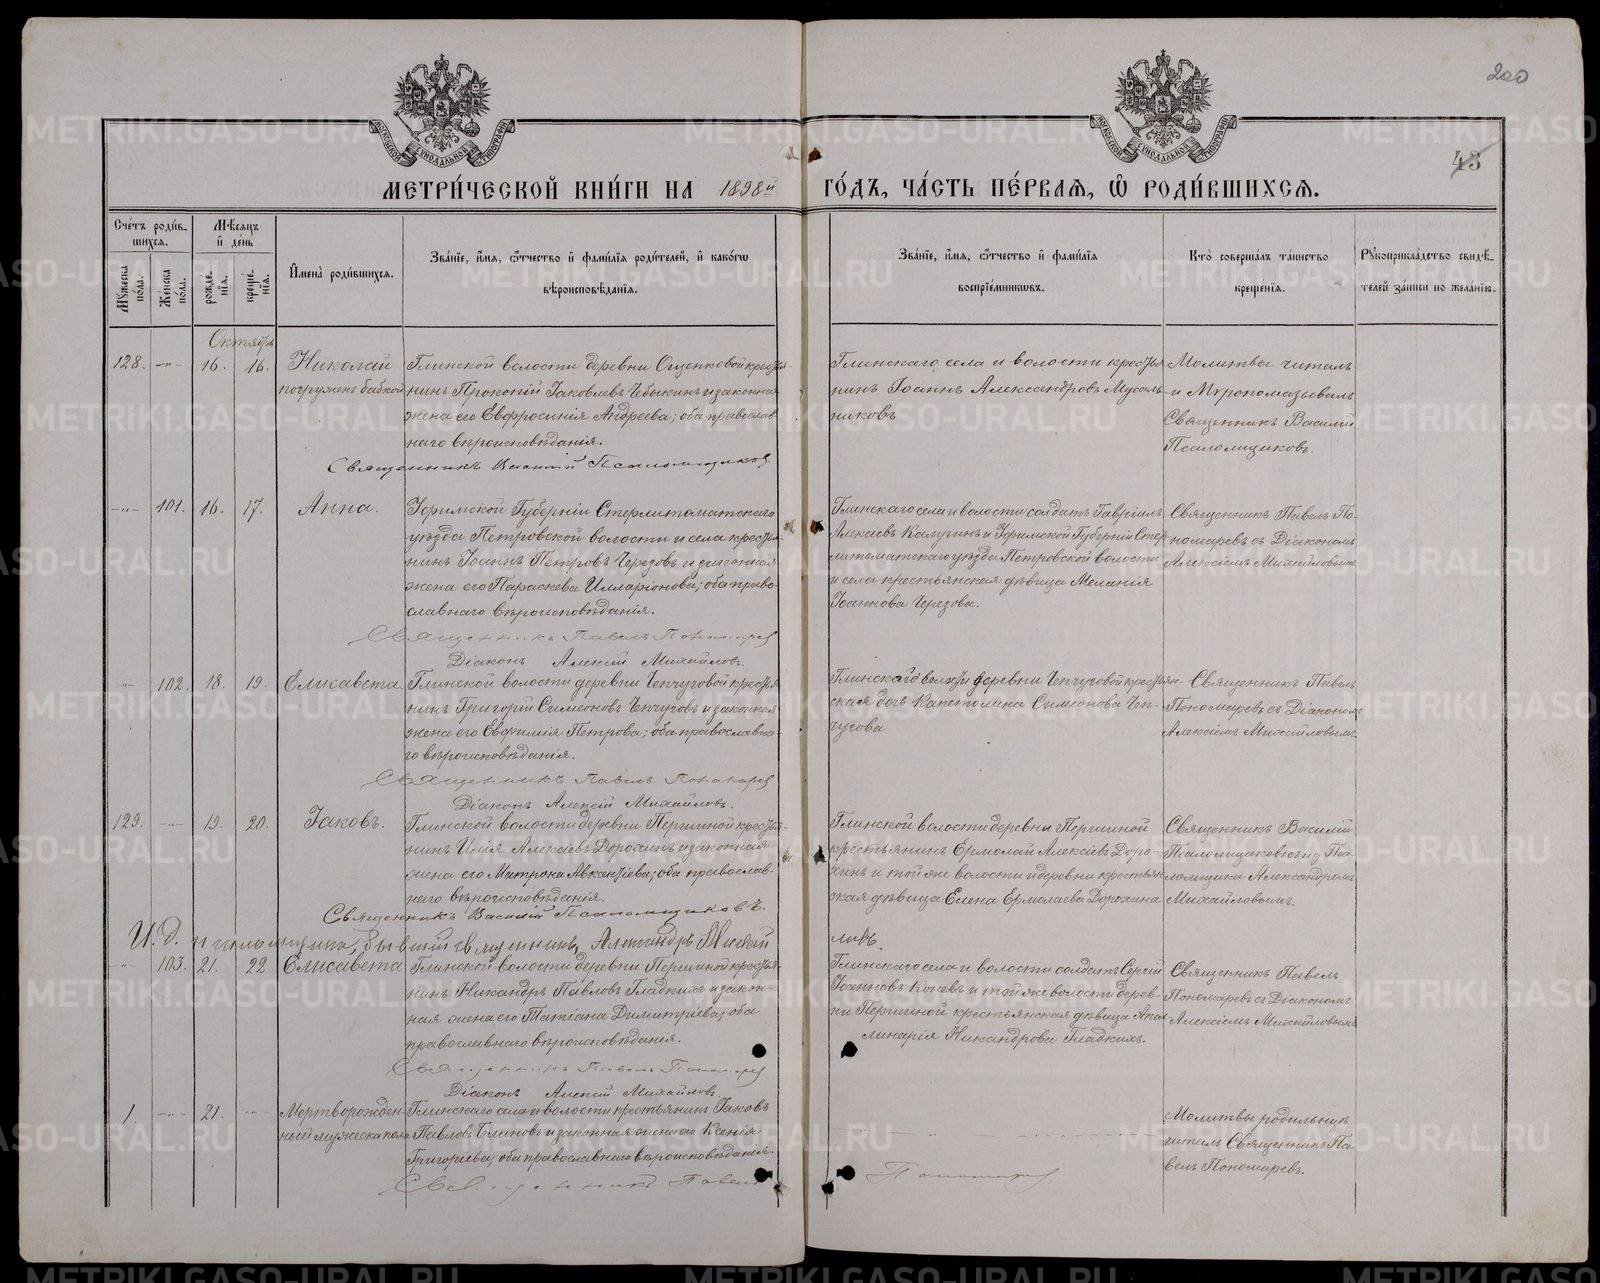 200
43
МОСКОВСКОЙ СѴНОДАЛЬНОЙ ТИПОГРАФІИ
МОСКОВСКОЙ СѴНОДАЛЬНОЙ ТИПОГРАФІИ
МЕТРИ́ЧЕСКОЙ КНИ́ГИ НА 1898й ГО́ДЪ, ЧА́СТЬ ПЕ́РВАѦ, Ѡ РОДИ́ВШИХСѦ.
Сче́тъ роди́в-
шихся.
Мѣ́сяцъ
и҆ де́нь
Мꙋжеска по́ла.
Же́нска по́ла.
рожде́-
нїя.
креще́-
нїя.
И҆мена̀ роди́вшихся.
Зва́нїе, и҆́мя, ѻ҆́тчество и҆ фами́лїя роди́телей, и҆ како́гѡ
вѣроисповѣ́данїя.
Зва́нїе, и҆́мя, ѻ҆́тчество и҆ фами́лїя
воспрїе́мниковъ.
Кто̀ соверша́лъ та́инство
креще́нїя.
Рꙋкоприкла́дство свидѣ́-
телей за́писи по жела́нїю.
Октябрь
128. -"- 16. 16. Николай
погруженъ бабкой
Глинской волости деревни Ощепковой кресть-
янинъ Прокопій Іаковлевъ Чебыкинъ и законная
жена его Евфросинія Андреева; оба православ-
наго вѣроисповѣданія.
Священникъ Василій Псаломщиковъ
Глинскаго села и волости крестья-
нинъ Іоаннъ Александровъ Мусаль-
никовъ
Молитвы читалъ
и Мѵропомазывалъ
Священникъ Василій
Псаломщиковъ.
-"- 101. 16. 17. Анна.
Уфимской Губерніи Стерлитамакскаго
уѣзда Петровской волости и села крестья-
нинъ Іоаннъ Петровъ Черезовъ и законная
жена его Параскева Илларіонова; оба право-
славнаго вѣроисповѣданія.
Священникъ Павелъ Пономаревъ
Діаконъ Алексій Михайловъ.
Глинскаго села и волости солдатъ Гавріилъ
Алексіевъ Калугинъ и Уфимской Губерніи Стер-
литамакскаго уѣзда Петровской волости
и села крестьянская дѣвица Меланія
Іоаннова Черезова.
Священникъ Павелъ По-
номаревъ съ Діакономъ
Алексіемъ Михайловымъ
-"- 102. 18. 19. Елисавета
Глинской волости деревни Чепчуговой крестья-
нинъ Григорій Симеоновъ Чепчуговъ и законная
жена его Евфимія Петрова; оба православна-
го вѣроисповѣданія.
Священникъ Павелъ Пономаревъ
Діаконъ Алексій Михайловъ.
Глинской волости деревни Чепчуговой крестьян-
ская дочь Капетолина Симеонова Чеп-
чугова
Священникъ Павелъ
Пономаревъ съ Діакономъ
Алексіемъ Михайловымъ
129. -"- 19. 20. Іаковъ.
Глинской волости деревни Першиной крестья-
нинъ Илія Алексіевъ Дорохинъ и законная
жена его Матрона Авксентіева; оба православ-
наго вѣроисповѣданія.
Священникъ Василій Псаломщиковъ.
И. д. псаломщика, бывшій священникъ, Александръ Михай
ловъ.
Глинской волости деревни Першиной
крестьянинъ Ермолай Алексіевъ Доро-
хинъ и той же волости и деревни крестьян-
ская дѣвица Елена Ермолаева Дорохина
Священникъ Василій
Псаломщиковъ съ и. д. Пса-
ломщика Александромъ
Михайловымъ.
-"- 103. 21. 22 Елисавета
Глинской волости деревни Першиной крестья-
нинъ Никандръ Павловъ Гладкихъ и закон-
ная жена его Татіана Димитріева; оба
православнаго вѣроисповѣданія.
Священникъ Павелъ Пономаревъ
Діаконъ Алексій Михайловъ.
Глинскаго села и волости солдатъ Сергій
Іоанновъ Коневъ и той же волости дерев-
ни Першиной крестьянская дѣвица Апол-
линарія Никандрова Гладкихъ.
Священникъ Павелъ
Пономаревъ съ Діакономъ
Алексіемъ Михайловымъ
1. -"- 21. -"- Мертворожден-
ный мужеска пола
Глинскаго села и волости крестьянинъ Іаковъ
Павловъ Блиновъ и законная жена его Ксенія
Григорьева; оба православнаго вѣроисповѣданія.
Священникъ Павелъ Пономаревъ
Молитвы родильницѣ
читалъ Священникъ Па-
велъ Пономаревъ.
METRIKI.GASO-URAL.RU